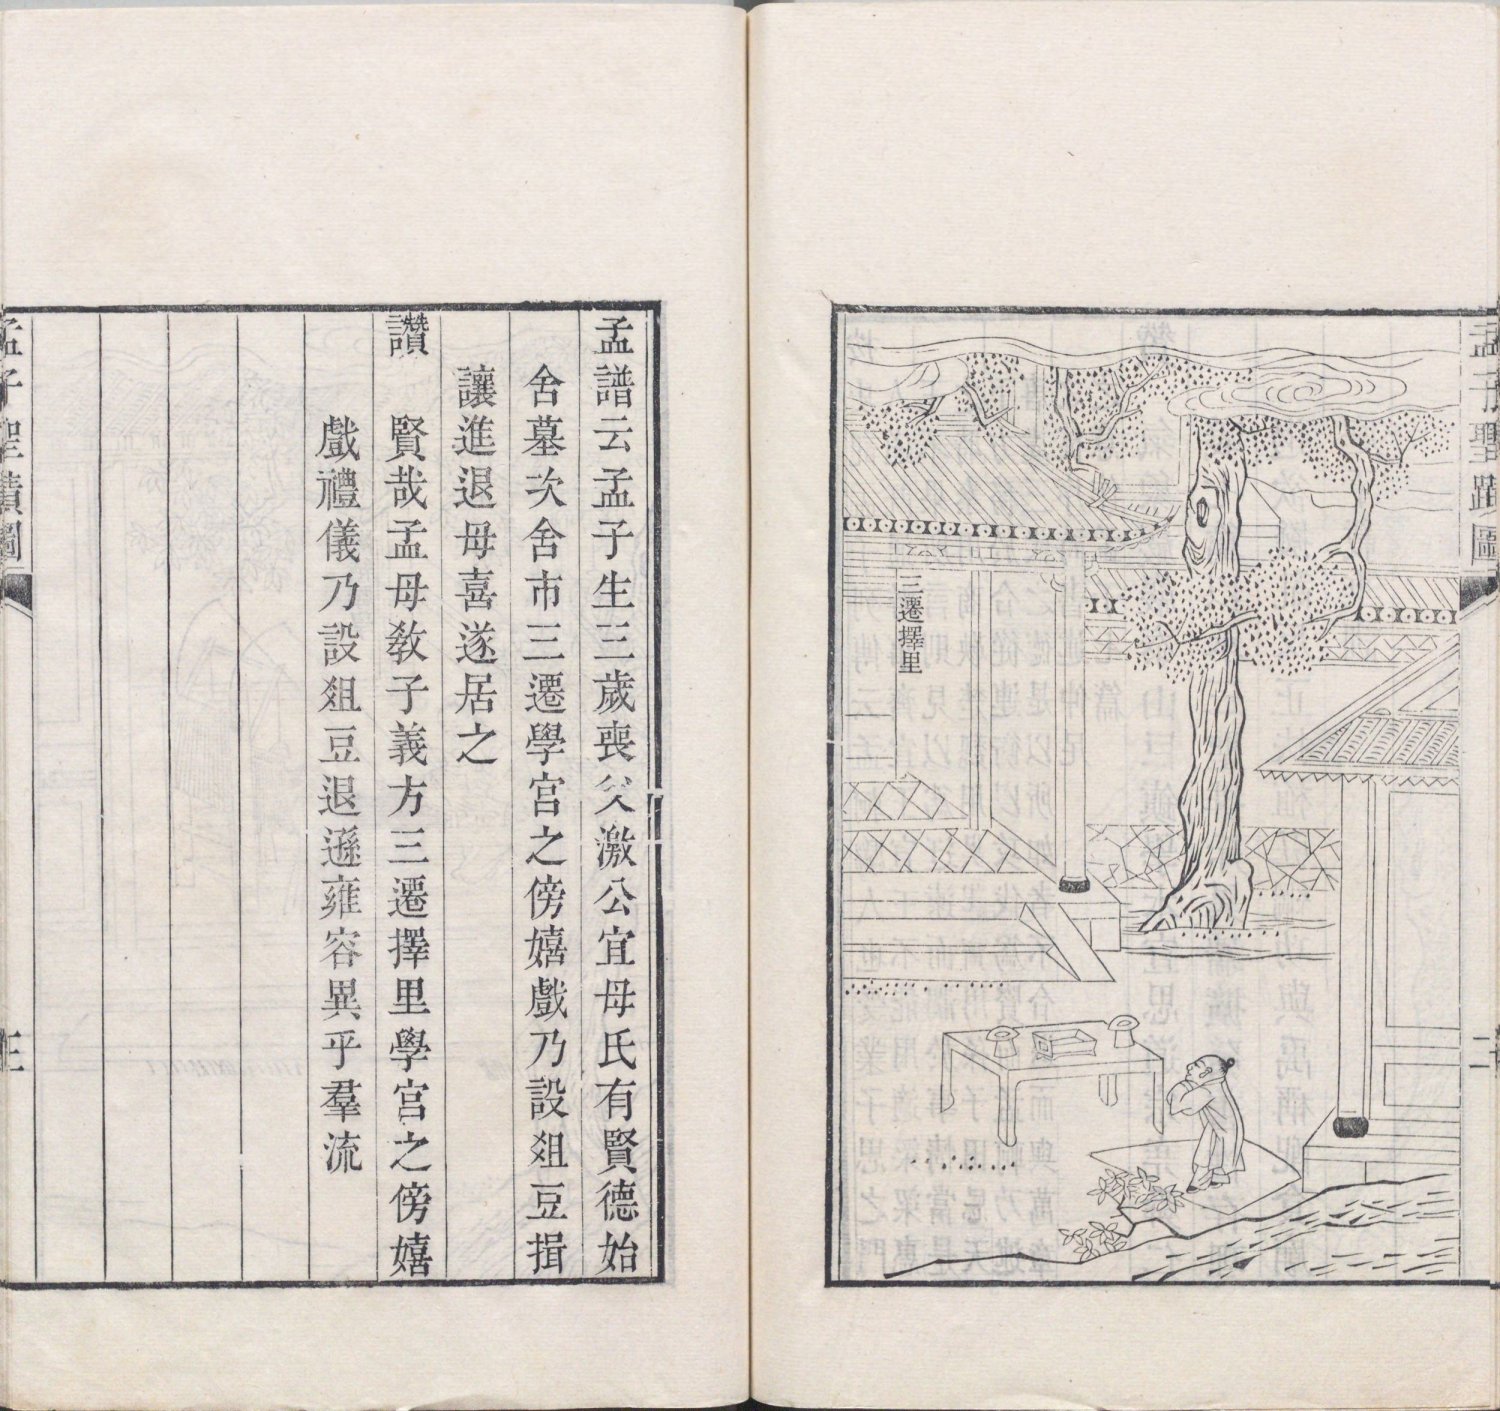 孟子聖蹟圖
二
三遷擇里
孟譜云孟子生三歲喪父激公宜母氏有賢德始
舍墓次舍市三遷學宮之傍嬉戲乃設俎豆揖
讓進退母喜遂居之
讚　賢哉孟母教子義方三遷擇里學宮之傍嬉
戲禮儀乃設俎豆退遜雍容異乎羣流
孟子聖蹟圖
三